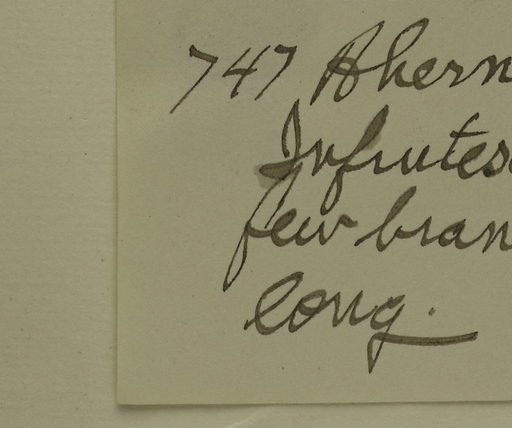 747 Ahern
Infrutes
few bran
long.